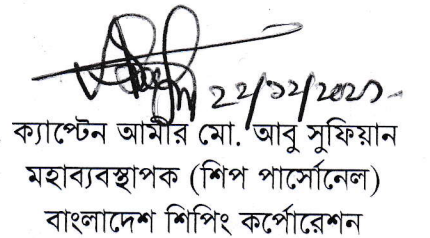 ক্যাপ্টেন আমীর মো. আবু সুফিয়ান
মহাব্যবস্থাপক (শিপ পার্সোনেল)
বাংলাদেশ শিপিং কর্পোরেশন